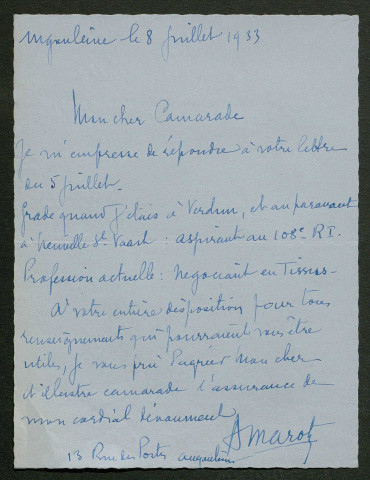 Angoulême le 8 Juillet 1933
Mon cher Camarade
Je m'empresse de répondre à votre lettre
du 5 juillet.
Grade quand j'étais à Verdun, et auparavant
à Neuville St Vaast : aspirant au 108e R.I.
Profession actuelle : negociant en Tissus
A votre entière disposition pour tous
renseignements qui pourraient vous être
utiles, je vous prie d'agréer mon cher
et illustre camarade l'assurance de
mon cordial dévouement
AMarot
13 Rue des Postes Angoulême